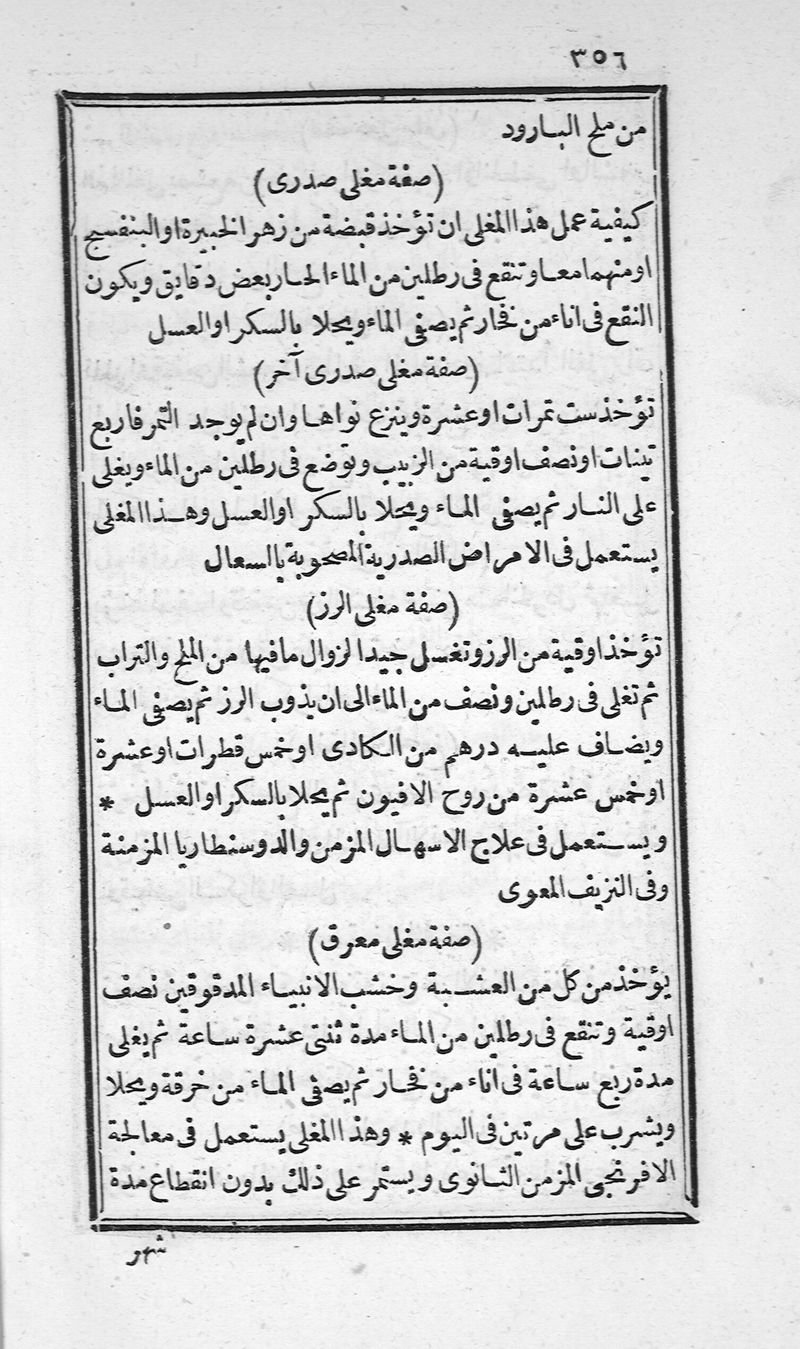 ٣٥٦
من ملح البارود
(صفة مغلى صدرى)
كيفية عمل هذا المغلى ان تؤخذ قبضة من زهر الخبيرة او البنفسج
او منهما معا وتنقع فى رطلين من الماء الحار بعض دقايق ويكون
النقع فى اناء من فخار ثم يصفى الماء ويحلا بالسكر او العسل
(صفة مغلى صدرى آخر)
تؤخذ ست تمرات او عشرة وينزع نواها وان لم يوجد التمر فاربع
تينات او نصف اوقية من الزبيب وتوضع فى رطلين من الماء ويغلى
على النار ثم يصفى الماء ويحلا بالسكر او العسل وهذا المغلى
يستعمل فى الامراض الصدرية المصحوبة بالسعال
(صفة مغلى الرز)
تؤخذ اوقية من الرز وتغسل جيدا لزوال ما فيها من الملح والتراب
ثم تغلى فى رطلين ونصف من الماء الى ان يذوب الرز ثم يصفى الماء
ويضاف عليه درهم من الكادى او خمس قطرات او عشرة
او خمس عشرة من روح الافيون ثم يحلا بالسكر او العسل *
ويستعمل فى علاج الاسهال المزمن والدوسنطاريا المزمنة
وفى النزيف المعوى
(صفة مغلى معرق)
يؤخذ من كل من العشبة وخشب الانبياء المدقوقين نصف
اوقية وتنقع فى رطلين من الماء مدة ثنتى عشرة ساعة ثم يغلى
مدة ربع ساعة فى اناء من فخار ثم يصفى الماء من خرقة ويحلا
ويشرب على مرتين فى اليوم * وهذا المغلى يستعمل فى معالجة
الافرنجى المزمن الثانوى ويستمر على ذلك بدون انقطاع مدة
شهر